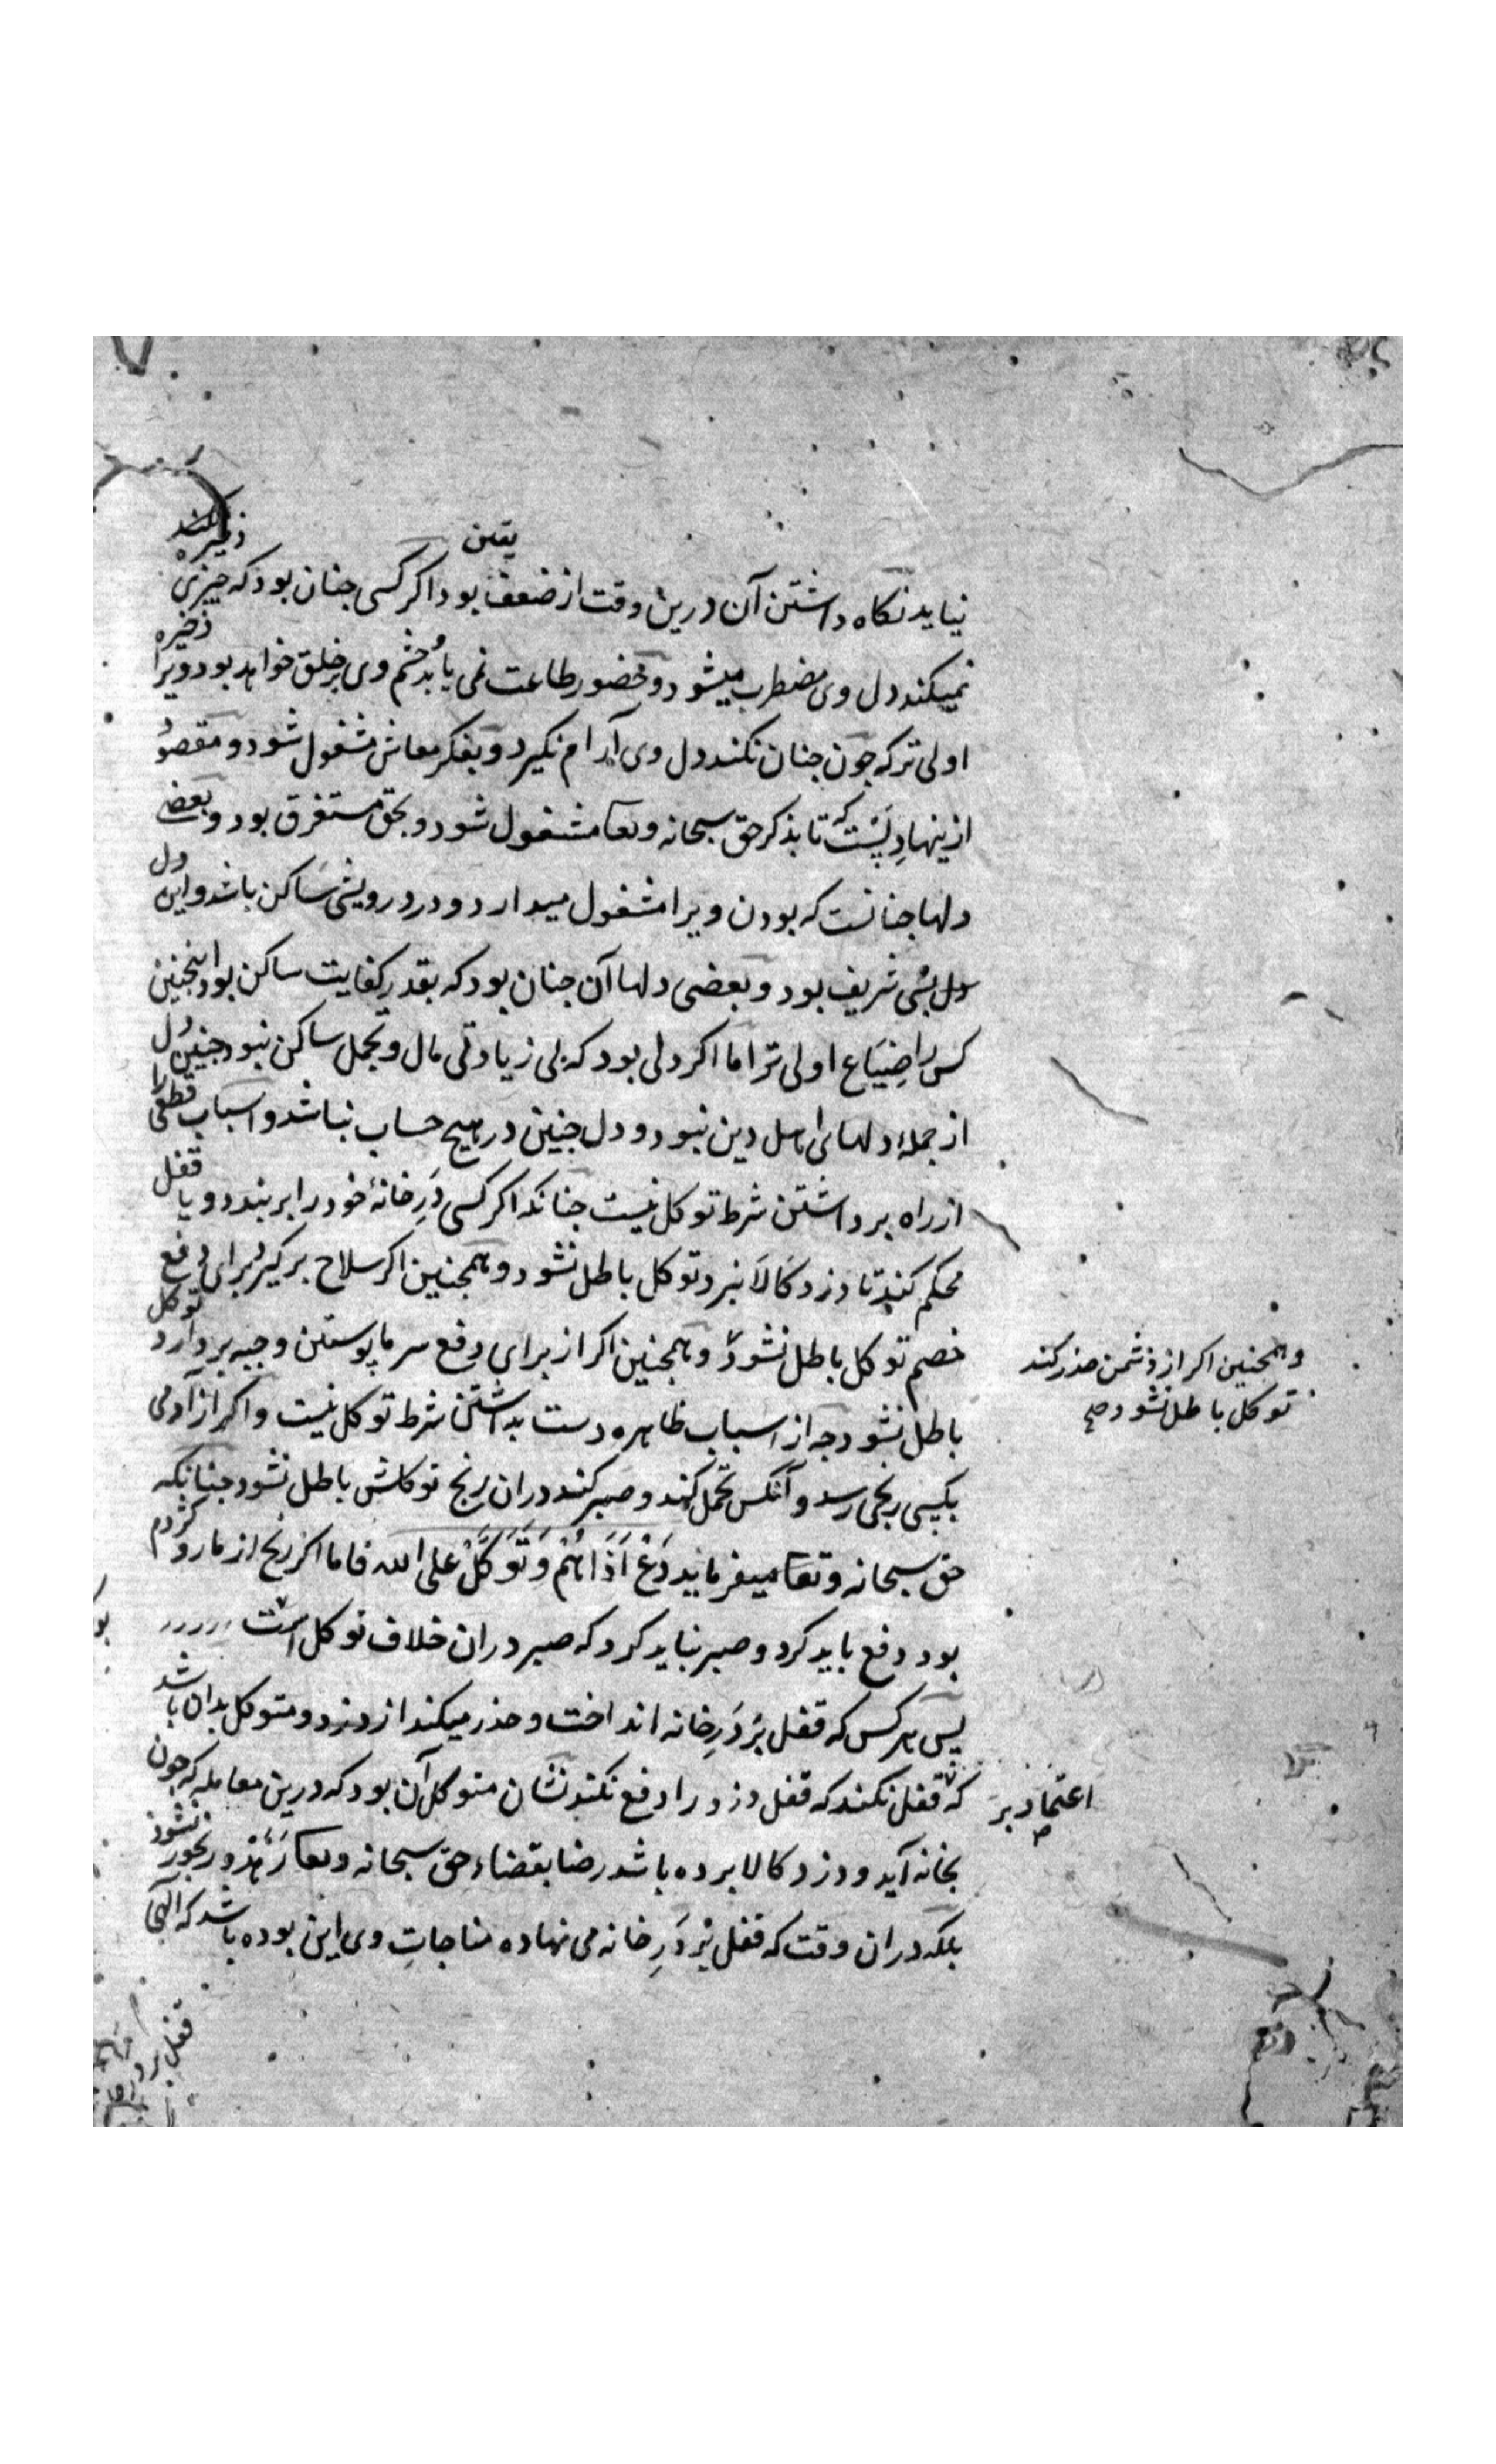 یقین
نیاید نکاه داشتن آن درین وقت از ضعف بود اکر کسی جنان بود که جیزی ذخیره
نمیکند دل وی مضطرب میشود و حضور طاعت نمی یابد و جشم وی بر خلق خواهد بود ویرا ذخیره
اولی ترکه جون جنان نکند دل وی آرام نکیرد و بفکر معاش مشغول شود و مقصود
ازینها دلیست که تا بذکر حق سبحانه وتعا مشغول شود و بحق مستغرق بود و بعضی
دلها جنانست که بودن ویرا مشغول میدارد و در درویشی ساکن باشد و این دل
دل بسی شریف بود و بعضی دلها آن جنان بود که بقدر کفایت ساکن بود اینجنین
کس را ضیاع اولی تر اما اکر دلی بود که بی زیادتی مال و تجمل ساکن نبود جنین دل
از جملهٔ دلهای اهل دین نبود و دل جنین در هیج حساب نباشد و اسباب قطعی را
از راه برداشتن شرط توکل نیست جنانکه اکر کسی دَرِ خانهٔ خود را بربندد و یا قفل
محکم کند تا دزد کالا نبرد توکل باطل نشود و همجنین اکر سلاح برکیرد برای دفع
خصم توکل باطل نشود و همجنین اکر از برای دفع سرما پوستین و جبه بردارد توکل
وهمجنین اکر از دشمن حذر کند
توکل باطل نشود صح
باطل نشود جه از اسباب ظاهره دست بداشتن شرط توکل نیست و اکر از آدمی
بکسی رنجی رسد و آنکس تحمل کند و صبر کند دران رنج توکلش باطل نشود جنانکه
حق سبحانه وتعا میفرماید دَعْ اَذَاهُمْ وَتَوَكَّلْ علی الله فاما اکر رنج از مار و کژدم
بود دفع باید کرد و صبر نباید کرد که صبر دران خلاف توکل است
پس هر کس که قفل بَر دَرِ خانه انداخت و حذر میکند از دزد و متوکل بدان باشد
که قفل نکند که قفل دزد را دفع نکند نشان متوکل آن بود که درین معامله که جون
اعتماد بر
بخانه آید و دزد کالا برده باشد رضا بقضاء حق سبحانه وتعا دهد و رنجور نشود
بلکه دران وقت که قفل بر دَرِ خانه می نهاده مناجاتِ وی این بوده باشد که الهی
قفل بر در